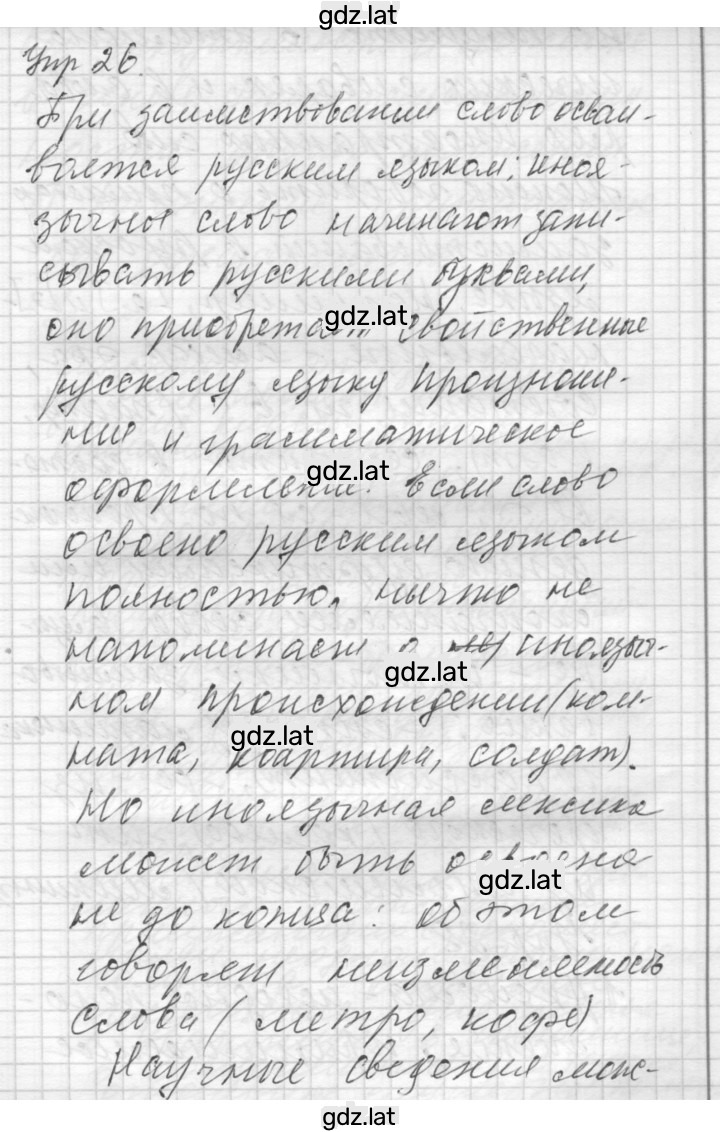 gdz.lat
Упр 26.
При заимствовании слово осваи-
вается русским языком; иноя-
зычное слово начинают запи-
сывать русскими буквами,
gdz.lat
оно приобретает свойственные
русскому языку произноше-
ние и грамматическое
gdz.lat
оформление. Если слово
освоено русским языком
полностью, ничто не
напоминает о иноязы-
gdz.lat
ном происхождении (ком-
gdz.lat
ната, квартира, солдат).
Но иноязычная лексика
может быть освоена
gdz.lat
не до конца: об этом
говорят неизменяемость
слова (метро, кофе)
Научные сведения мож-
gdz.lat